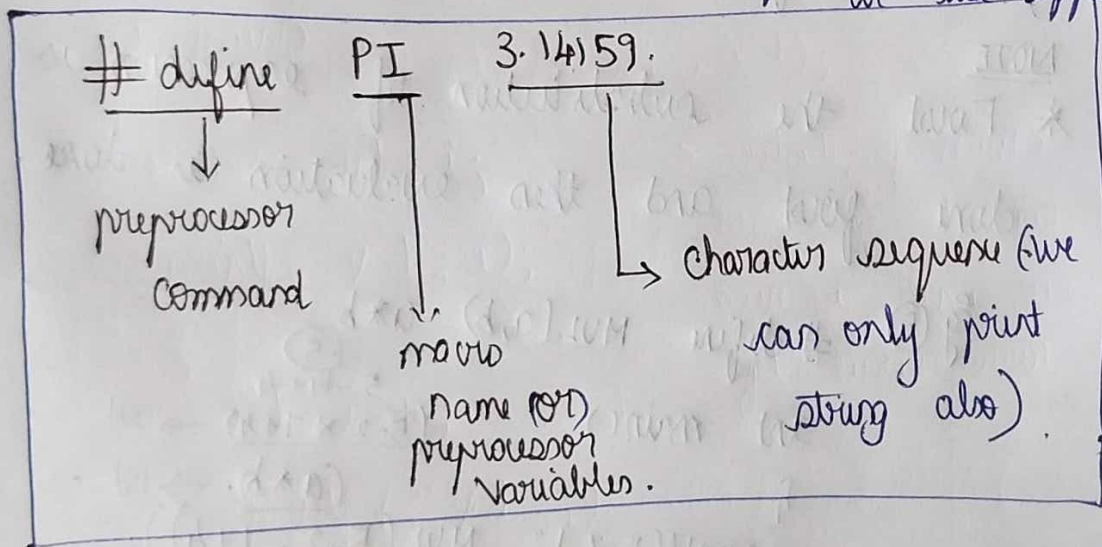 # define PI 3.14159.
preprocessor
command
macro
name (or)
preprocessor
variables.
character sequence (we
can only print
string also).